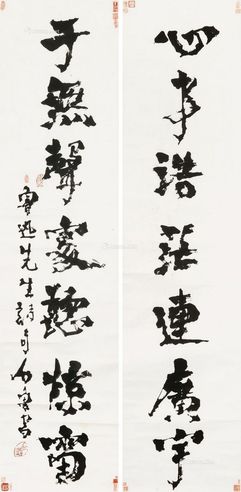 心事浩茫連廣宇
于無聲處聽惊雷
魯迅先生詩句